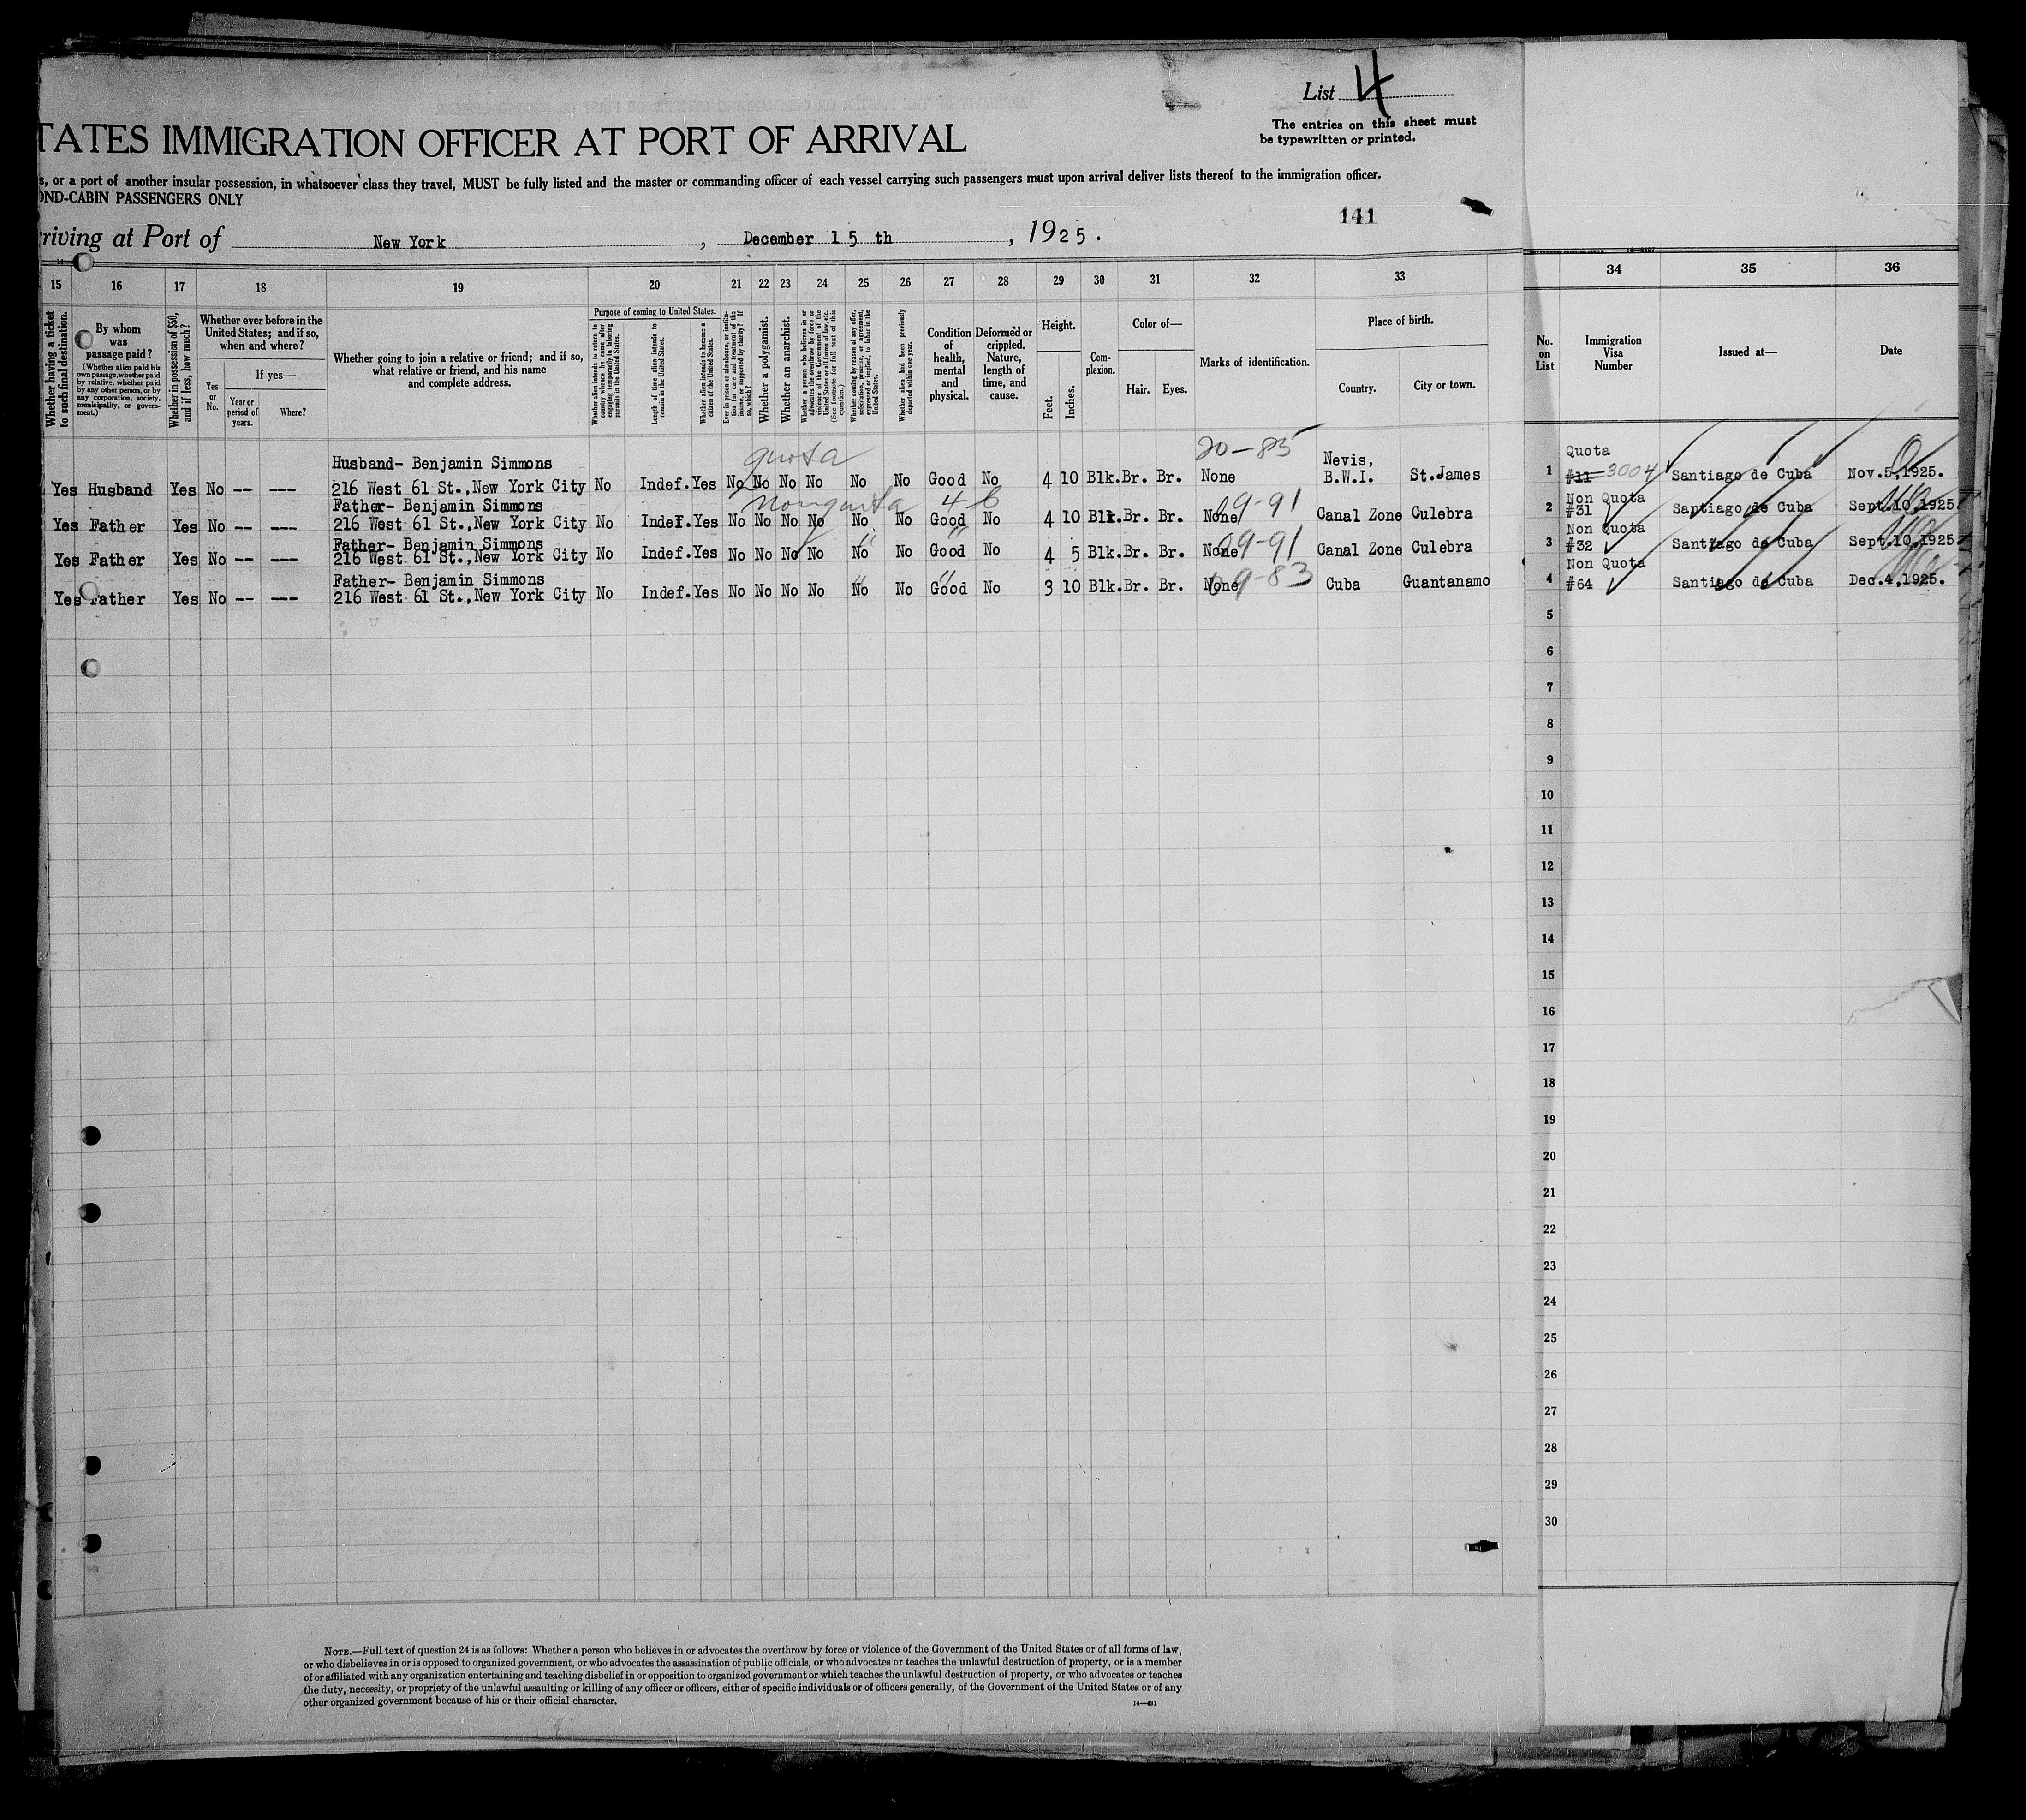 List 4
The entries on this sheet must
be typewritten or printed.
TATES IMMIGRATION OFFICER AT PORT OF ARRIVAL
s, or a port of another insular possession, in whatsoever class they travel, MUST be fully listed and the master or commanding officer of each vessel carrying such passengers must upon arrival deliver lists thereof to the immigration officer.
OND-CABIN PASSENGERS ONLY
141
riving at Port of New York, December 15 th, 1925.
15 16 17 18 19 20 21 22 23 24 25 26 27 28 29 30 31 32 33 34 35 36
Whether having a ticket to such final destination.
By whom was passage paid?
(Whether alien paid his own passage, whether paid by relative, whether paid by any other person, or by any corporation, society, municipality, or government.)
Whether in possession of $50, and if less, how much?
Whether ever before in the United States; and if so, when and where?
Yes or No.
If yes—
Year or period of years.
Where?
Whether going to join a relative or friend; and if so, what relative or friend, and his name and complete address.
Purpose of coming to United States.
Whether alien intends to return to country whence he came after engaging temporarily in laboring pursuits in the United States.
Length of time alien intends to remain in the United States.
Whether alien intends to become a citizen of the United States.
Ever in prison or almshouse, or institution for care and treatment of the insane, or supported by charity? If so, which?
Whether a polygamist.
Whether an anarchist.
Whether a person who believes in or advocates the overthrow by force or violence of the Government of the United States or all forms of law, etc. (See footnote for full text of this question.)
Whether coming by reason of any offer, solicitation, promise, or agreement, expressed or implied, to labor in the United States.
Whether alien had been previously deported within one year.
Condition of health, mental and physical.
Deformed or crippled. Nature, length of time, and cause.
Height.
Feet.
Inches.
Complexion.
Color of—
Hair. Eyes.
Marks of identification.
Place of birth.
Country.
City or town.
No. on List
Immigration Visa Number
Issued at—
Date
quota
20-85
Husband- Benjamin Simmons
Yes Husband Yes No -- --- 216 West 61 St.,New York City No Indef. Yes No No No No No No Good No 4 10 Blk. Br. Br. None Nevis, B.W.I. St.James 1 Quota #11 3004 Santiago de Cuba Nov.5,1925.
nonquota 4 b
09-91
Father- Benjamin Simmons
Yes Father Yes No -- --- 216 West 61 St.,New York City No Indef. Yes No No No No No No Good No 4 10 Blk. Br. Br. None Canal Zone Culebra 2 Non Quota #31 Santiago de Cuba Sept.10,1925.
" "
09-91
Father- Benjamin Simmons
Yes Father Yes No -- --- 216 West 61 St.,New York City No Indef. Yes No No No No No No Good No 4 5 Blk. Br. Br. None Canal Zone Culebra 3 Non Quota #32 Santiago de Cuba Sept.10,1925
" "
09-83
Father- Benjamin Simmons
Yes Father Yes No -- --- 216 West 61 St.,New York City No Indef. Yes No No No No No No Good No 3 10 Blk. Br. Br. None Cuba Guantanamo 4 Non Quota #64 Santiago de Cuba Dec.4,1925.
5
6
7
8
9
10
11
12
13
14
15
16
17
18
19
20
21
22
23
24
25
26
27
28
29
30
NOTE.—Full text of question 24 is as follows: Whether a person who believes in or advocates the overthrow by force or violence of the Government of the United States or of all forms of law,
or who disbelieves in or is opposed to organized government, or who advocates the assassination of public officials, or who advocates or teaches the unlawful destruction of property, or is a member
of or affiliated with any organization entertaining and teaching disbelief in or opposition to organized government or which teaches the unlawful destruction of property, or who advocates or teaches
the duty, necessity, or propriety of the unlawful assaulting or killing of any officer or officers, either of specific individuals or of officers generally, of the Government of the United States or of any
other organized government because of his or their official character.
14—431